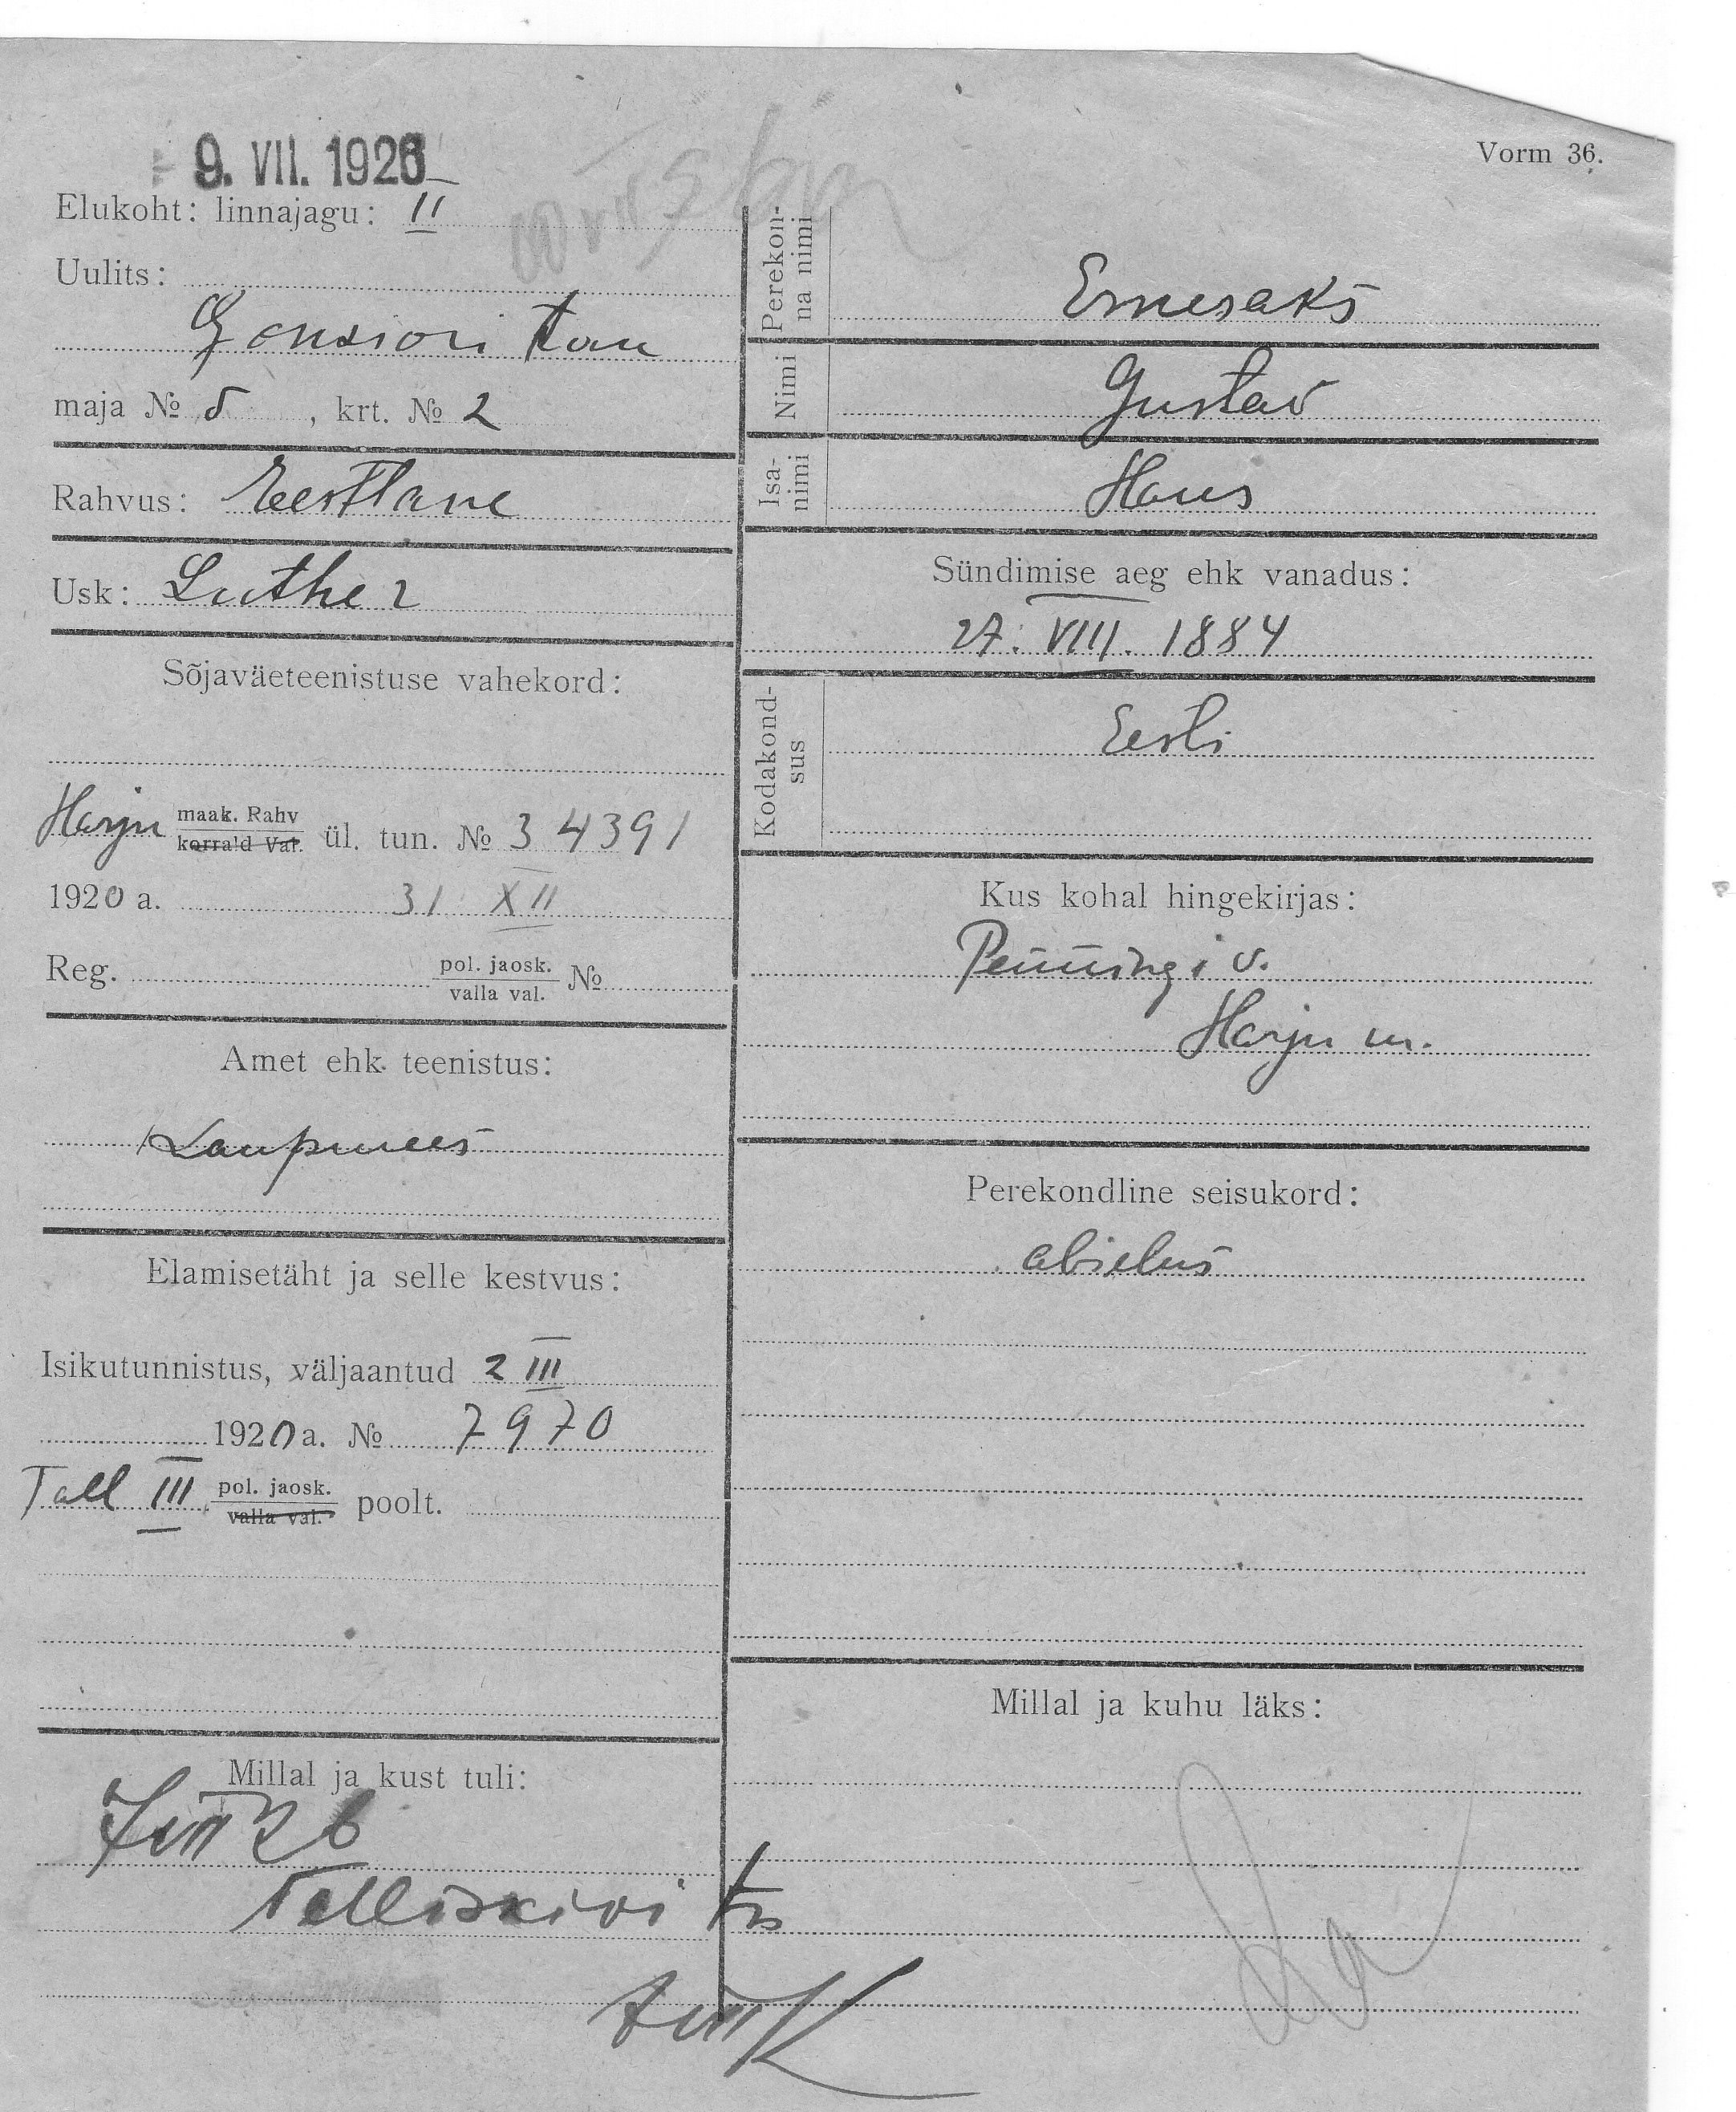 9. VII. 1926
Vorm 36.
Elukoht: linnajagu: II
Uulits:
Gonsiori tän
maja № 5, krt. № 2
Rahvus: Eestlane
Usk: Luther
Sõjaväeteenistuse vahekord:
Harju maak. Rahv
korra'd Val. ül. tun. № 34391
1920 a. 31 XII
Reg. pol. jaosk.
valla val. №
Amet ehk teenistus:
Kaupmees
Elamisetäht ja selle kestvus:
Isikutunnistus, väljaantud 2 III
1920 a. № 7970
Tall III pol. jaosk.
valla val. poolt.
Millal ja kust tuli:
26
Telliskivi
Perekon-
na nimi
Ernesaks
Nimi
Gustav
Isa-
nimi
Hans
Sündimise aeg ehk vanadus:
27. VIII. 1884
Kodakond-
sus
Eesti
Kus kohal hingekirjas:
Penningi v.
Harju m.
Perekondline seisukord:
abielus
Millal ja kuhu läks: